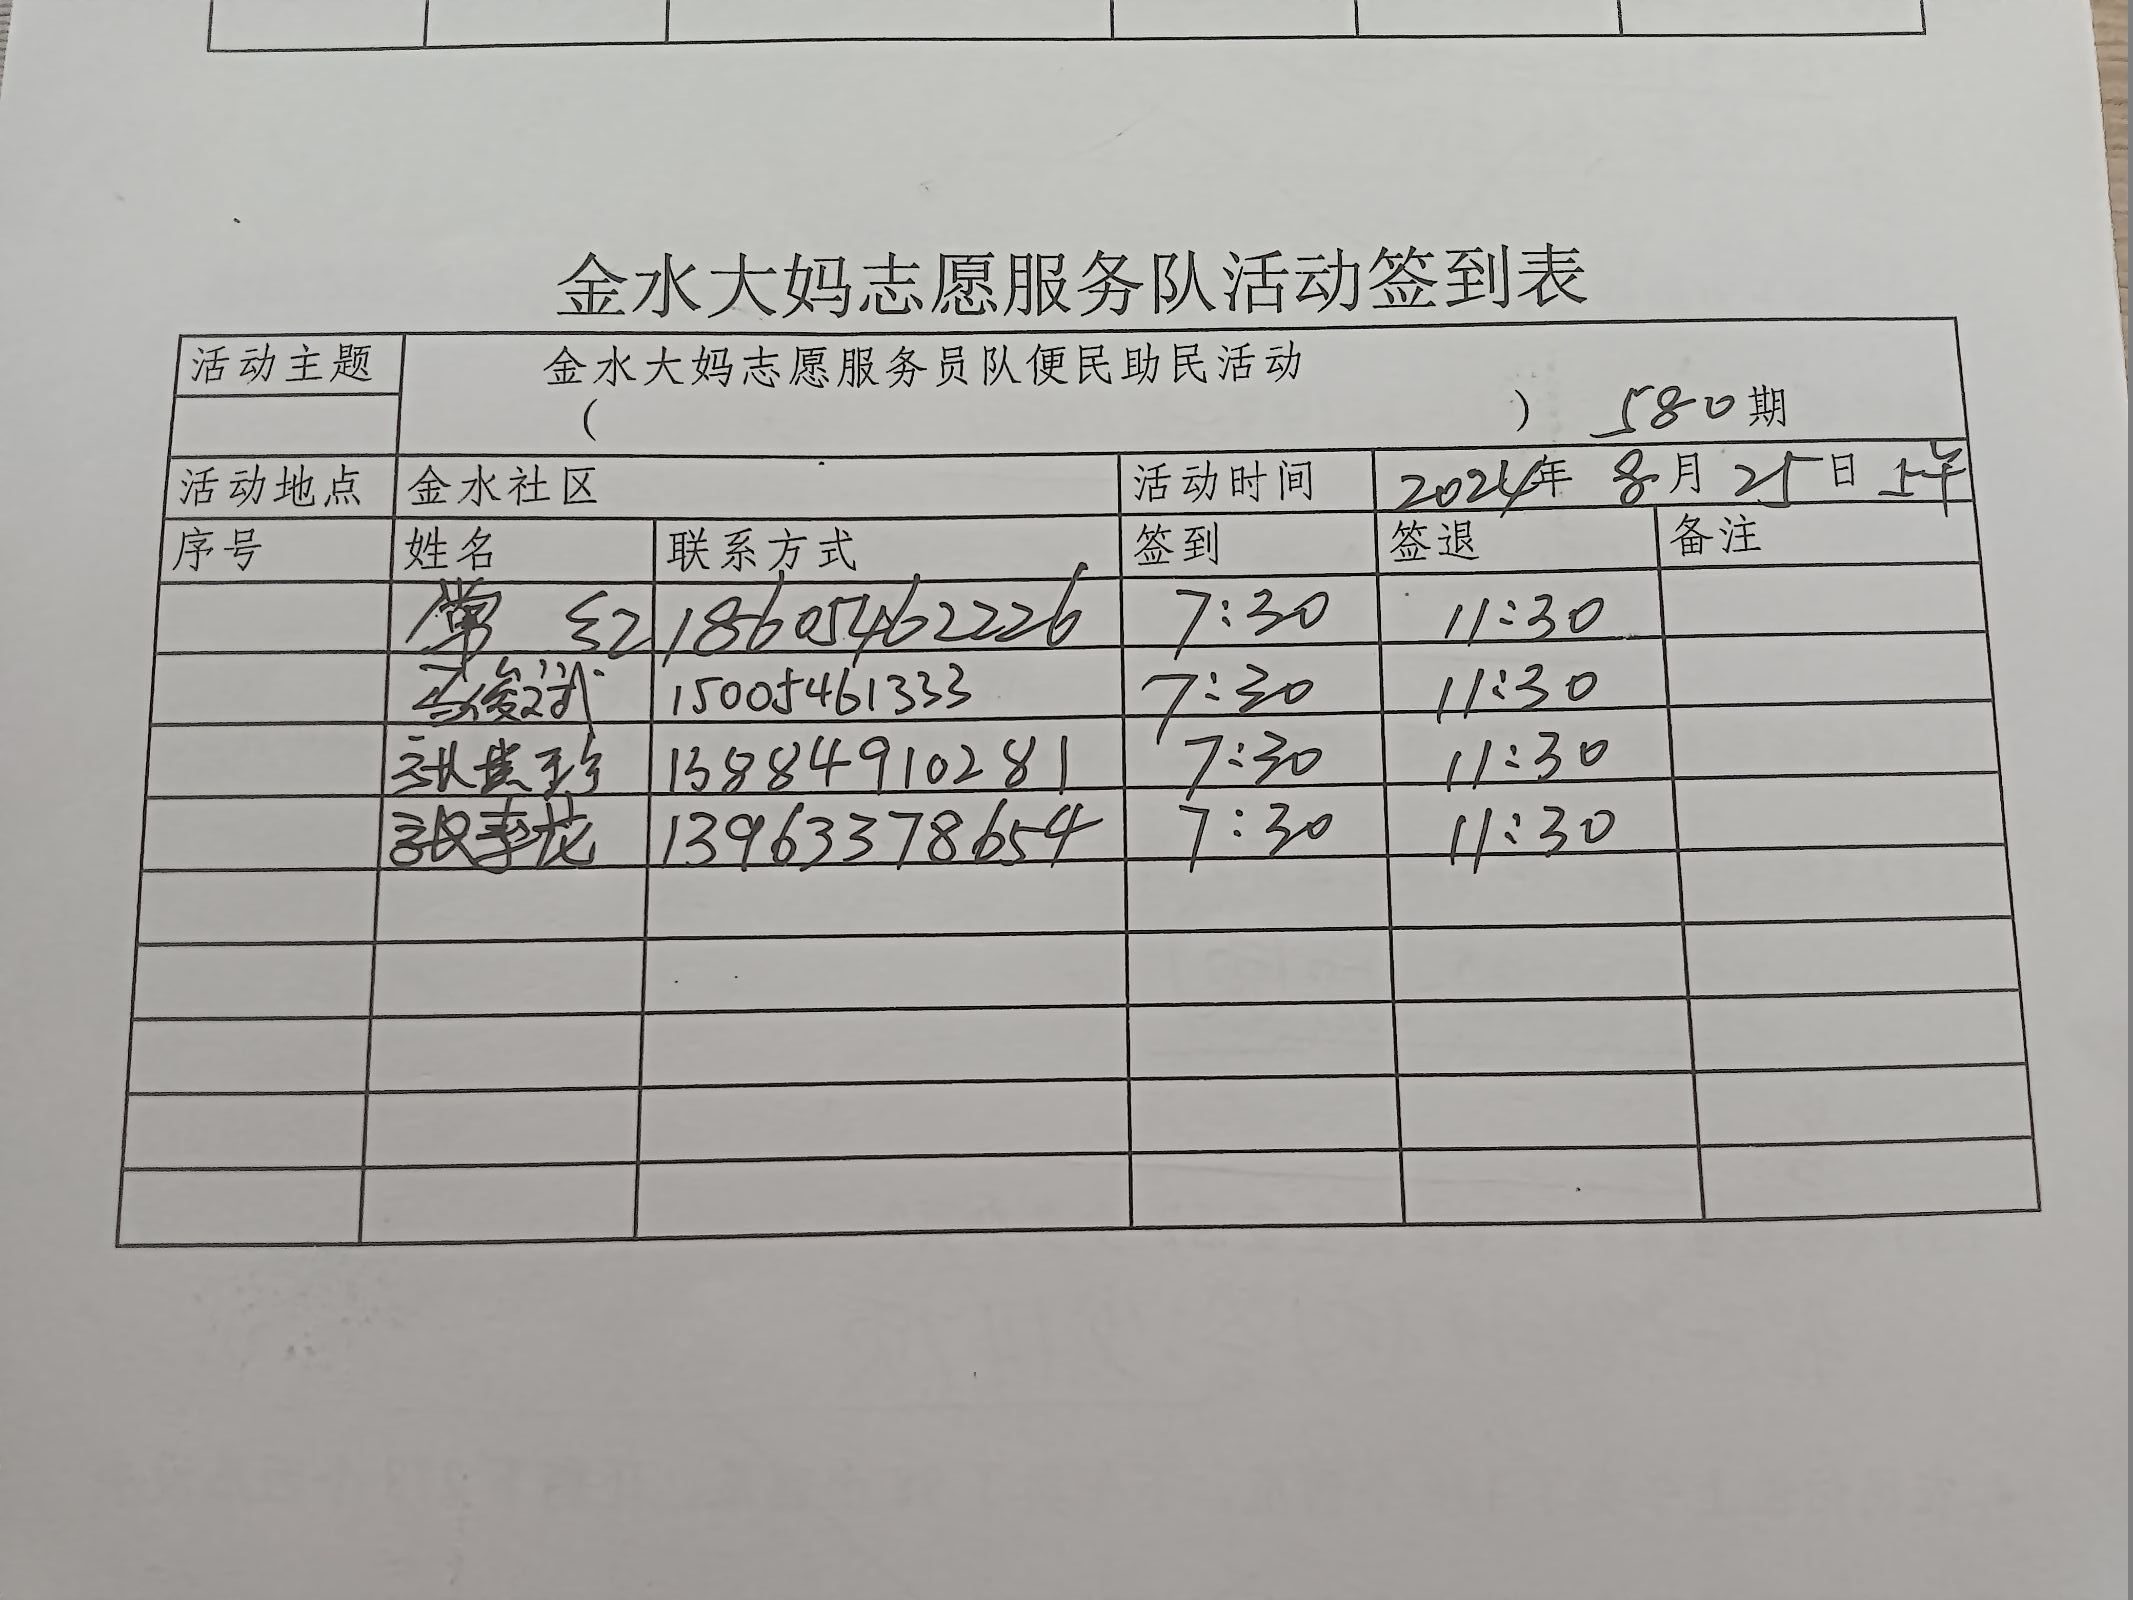 金水大妈志愿服务队活动签到表
活动主题 金水大妈志愿服务员队便民助民活动
( ) 580期
活动地点 金水社区 活动时间 2024年 8月 25日 上午
序号 姓名 联系方式 签到 签退 备注
常 红 18605462226 7:30 11:30
15005461333 7:30 11:30
13884910281 7:30 11:30
13963378654 7:30 11:30